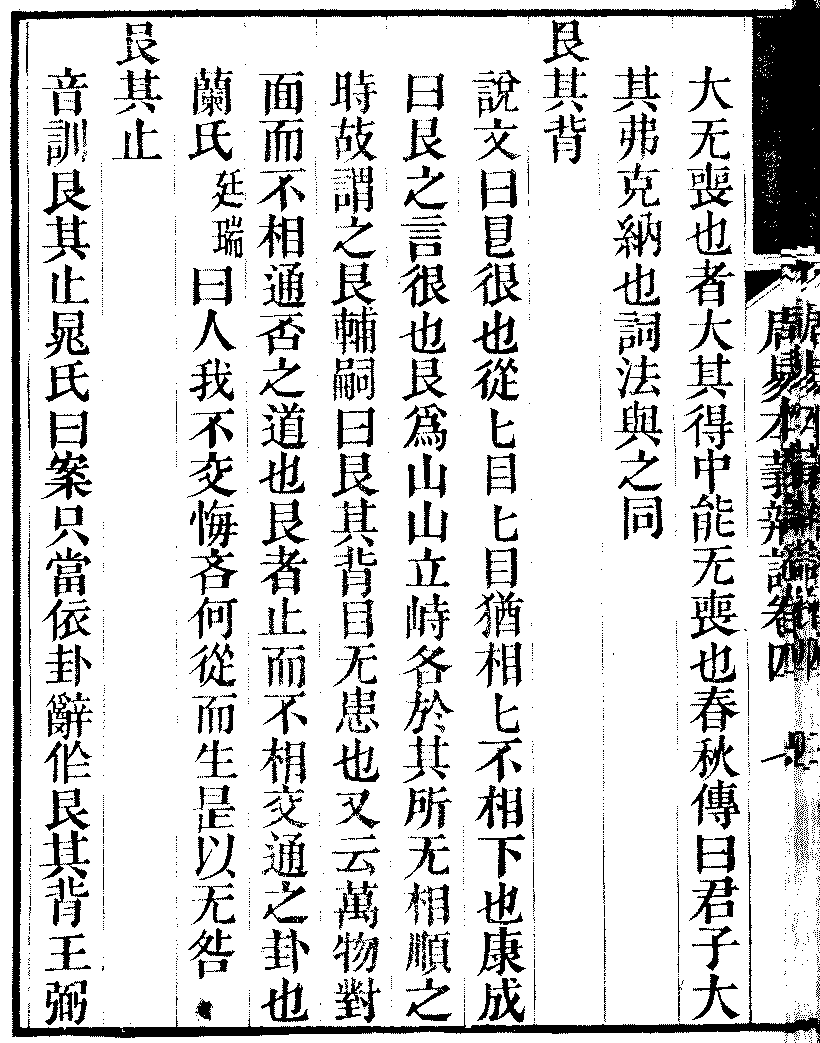 大无喪也者大其得中能无喪也春秋傳曰君子大
其弗克納也詞法與之同
艮其背
說文曰㫐很也從匕目匕目猶相匕不相下也康成
曰艮之言很也艮爲山山立峙各於其所无相順之
時故謂之艮輔嗣曰艮其背目无患也又云萬物對
面而不相通否之道也艮者止而不相交通之卦也
蘭氏廷瑞曰人我不交悔吝何從而生是以无咎
艮其止
音訓艮其止晁氏曰案只當依卦辭作艮其背王弼